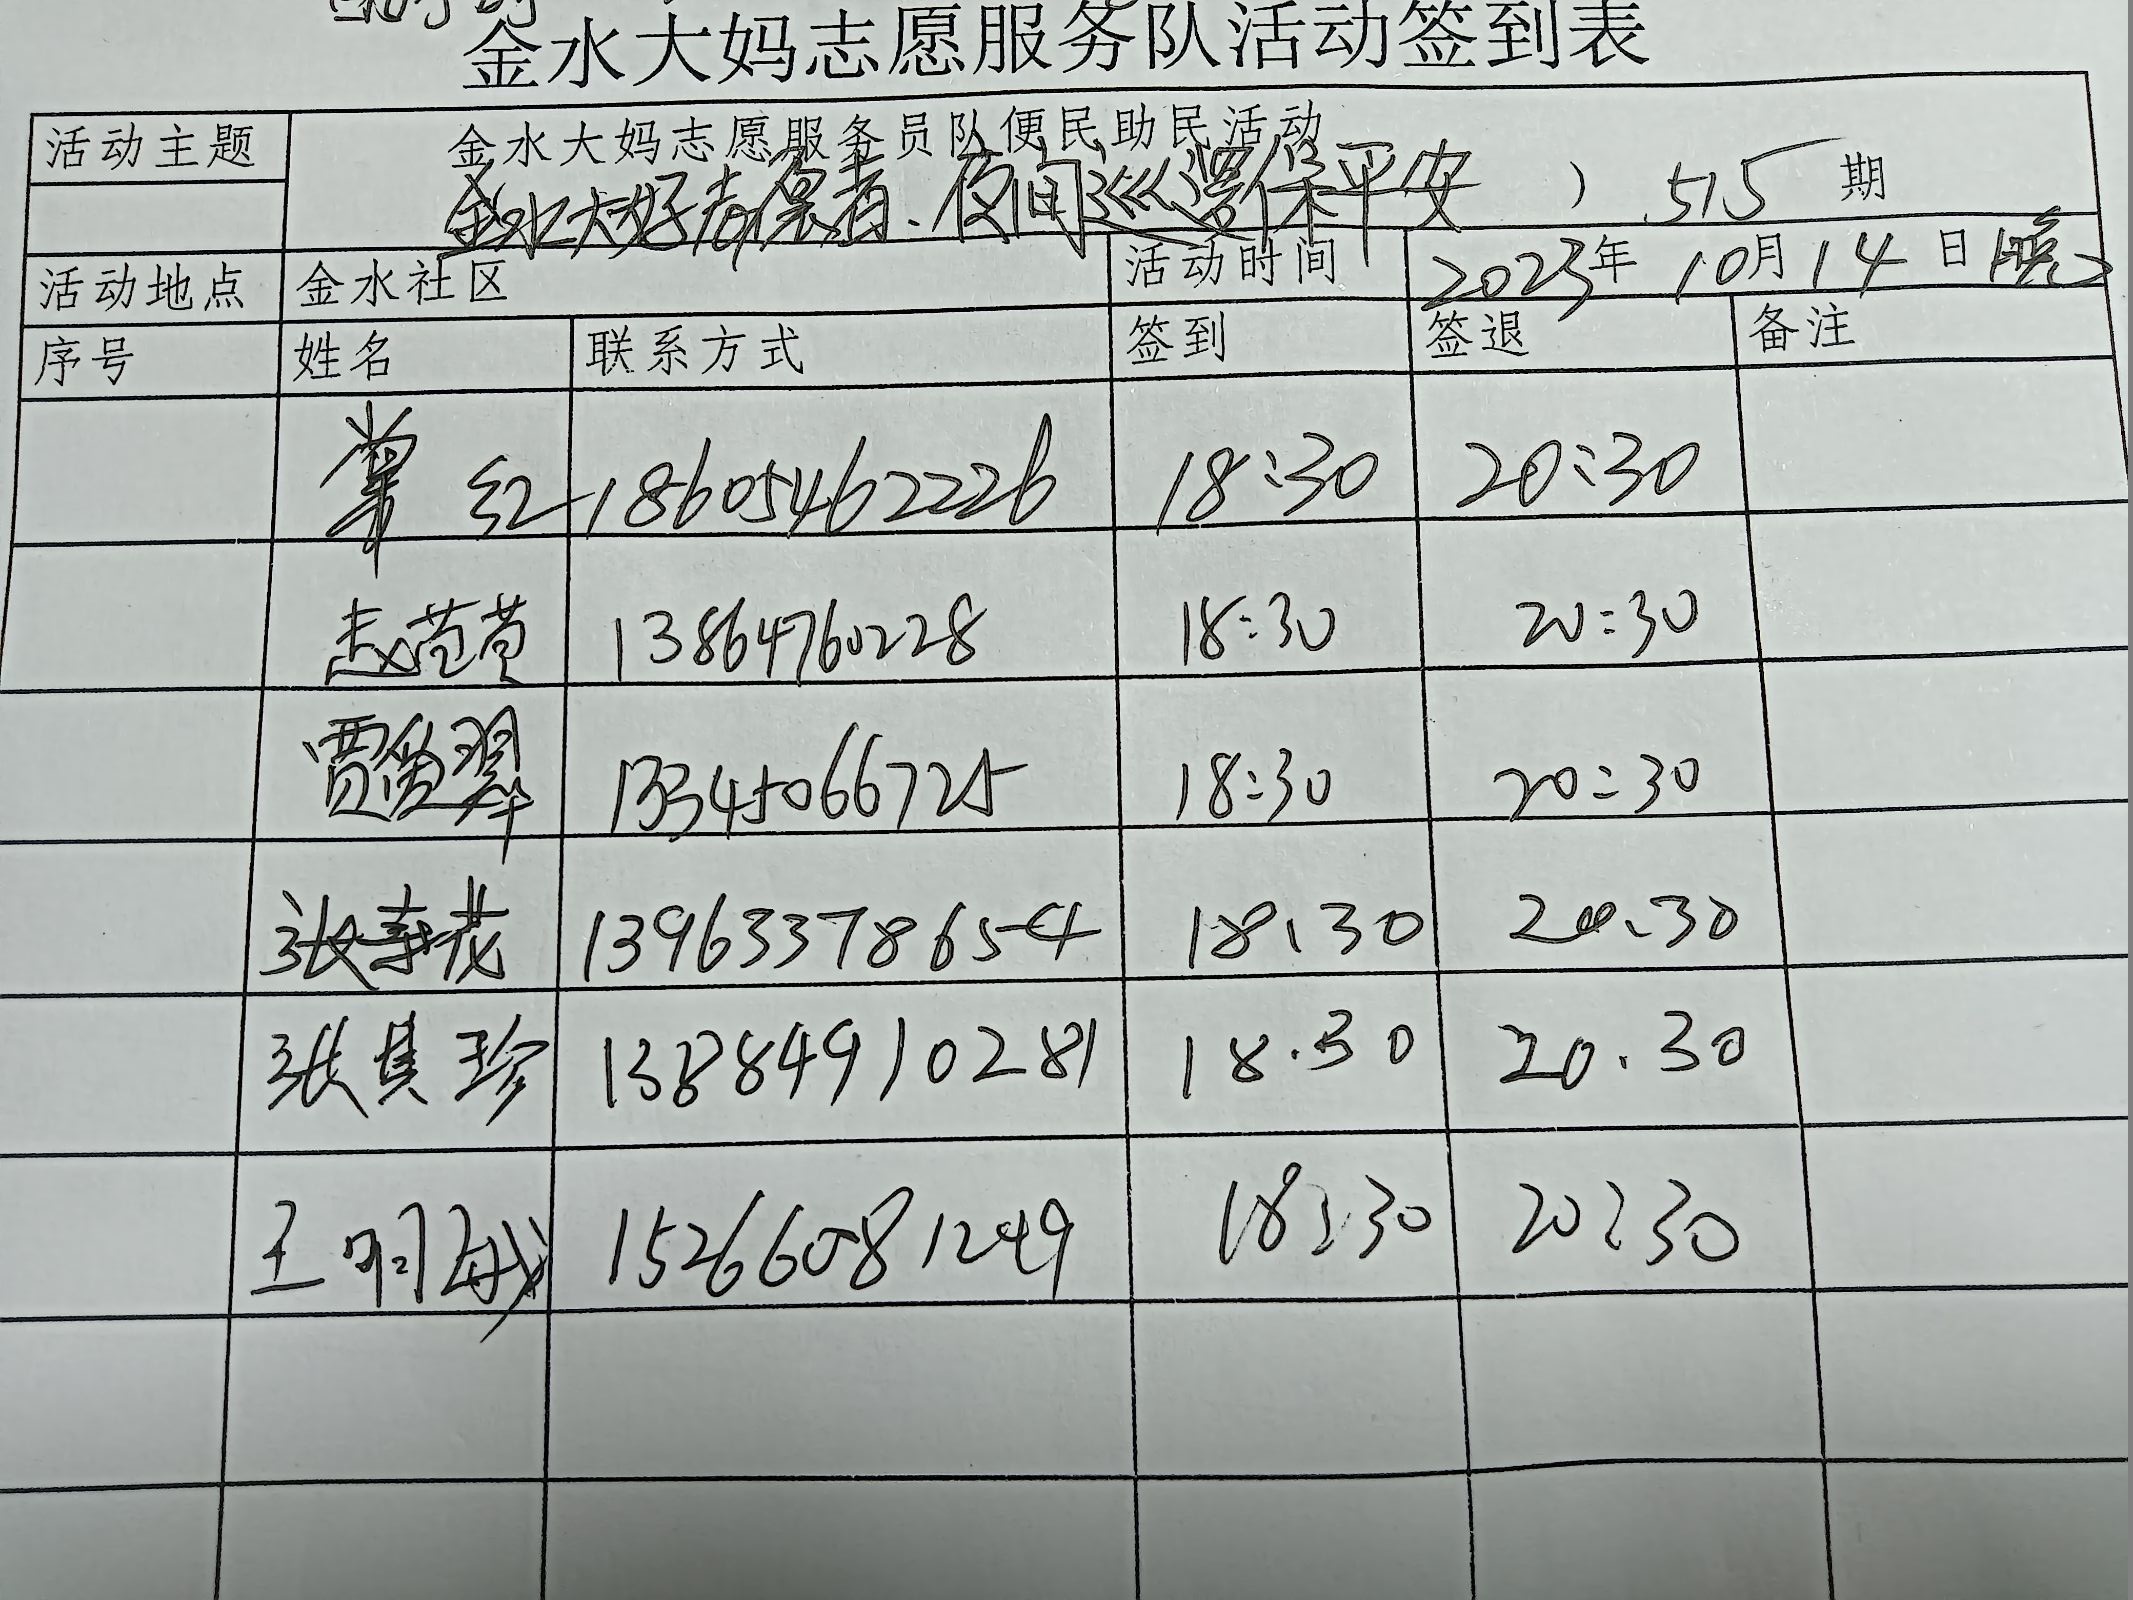 金水大妈志愿服务队活动签到表
活动主题 金水大妈志愿服务员队便民助民活动
金水大妈志愿者、夜间巡逻保平安 ） 515 期
活动地点 金水社区 活动时间 2023年 10月 14 日(晚)
序号 姓名 联系方式 签到 签退 备注
红 18605462226 18:30 20:30
赵范范 13864760228 18:30 20:30
贾翠 13345066725 18:30 20:30
张茂 13963378654 18:30 20:30
张其珍 13884910281 18.30 20.30
王明敏 15266081249 18:30 20:30